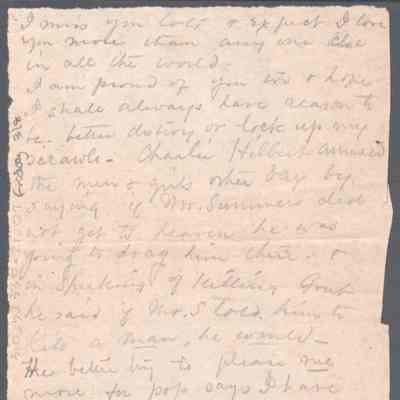 I miss you lots & expect I love
you more than any one else
in all the world.
I am proud of you too & hope
I shall always have reason to
be. better destroy or lock up my
scrawls - Charlie Hilbert amused
the men & girls other day by
saying if Mr. Summers did
not get to heaven he was
going to drag him there. &
in speaking of killing
he said if Mr. S told him to
kill a man, he would -
the better try to please me
more for pop says I have